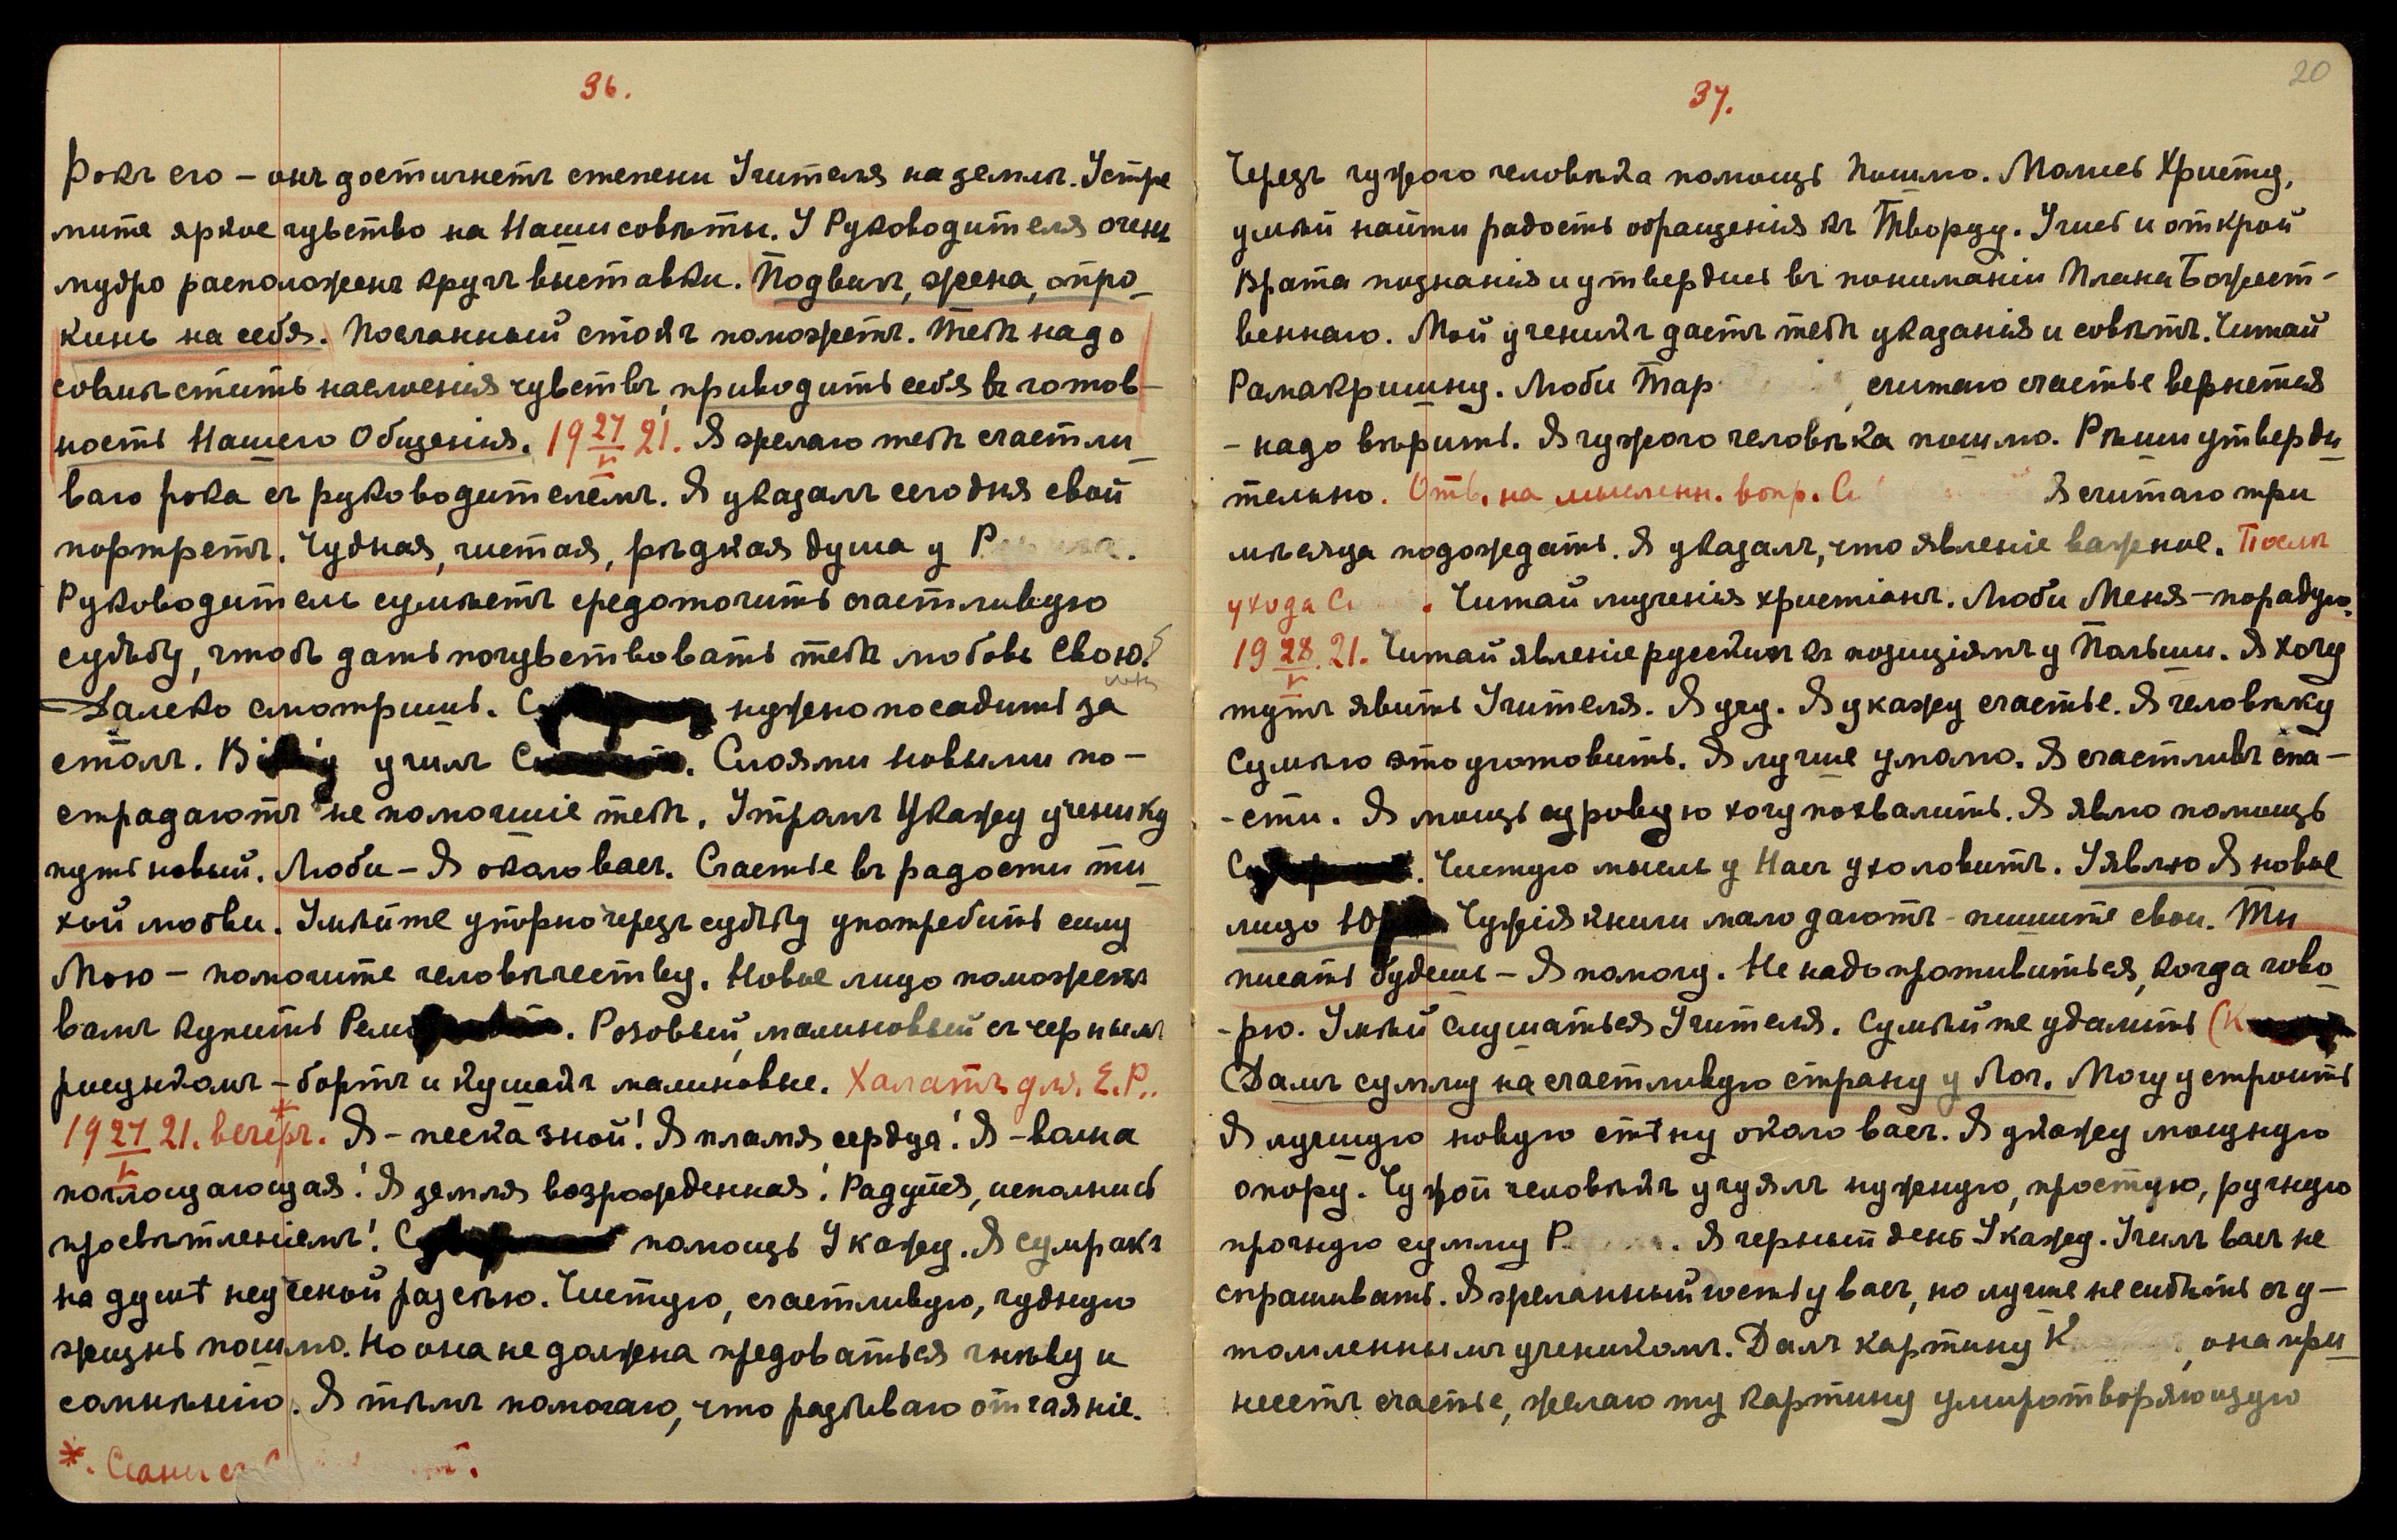 36.
Рокъ его – онъ достигнетъ степени Учителя на землѣ. Устре
мите яркое чувство на Наши совѣты. У Руководителя очень
мудро расположенъ кругъ выставки. Подвигъ, жена, опро_
кинь на себя. Посланный стокъ поможетъ. Тебѣ надо
совмѣстить наслоенія чувствъ, приводить себя въ готов–
ность Нашего Общенія. 19 27/V 21. Я желаю тебѣ счастли_
ваго рока съ руководителемъ. Я указалъ сегодня свой
портретъ. Чудная, чистая, рѣдкая душа у Р
Руководитель сумѣетъ средоточить счастливую
судьбу, чтобъ дать почувствовать тебѣ любовь Свою.
Далеко смотришь. С нужно посадить за
столъ. училъ С Слоями новыми по–
страдаютъ не помогшіе тебѣ. Утромъ Укажу ученику
путь новый. Люби – Я около васъ. Счастье въ радости ти_
хой любви. Умѣйте упорно черезъ судьбу употребить силу
Мою – помогите человѣчеству. Новое лицо поможетъ
вамъ купить Розовый, малиновый съ чернымъ
рисункомъ – бортъ и кушакъ малиновые. Халатъ для Е.Р..
19 27/V 21. вечеръ.* Я – песка зной! Я пламя сердца! Я – волна
поглощающая! Я земля возрожденная! Радуйся, исполнись
просвѣтленіемъ! С помощь Укажу. Я сумракъ
на душѣ неученой разсѣю. Чистую, счастливую, чудную
жизнь пошлю. Но она не должна предоваться гнѣву и
сомнѣнію. Я тѣмъ помогаю, что разбиваю отчаяніе.
*. Сеансъ съ
20
37.
Черезъ чужого человѣка помощь Пошлю. Молись Христу,
умѣй найти радость обращенія къ Творцу. Учись и открой
Врата познанія и утвердись въ пониманіи Плана Божест–
веннаго. Мой ученикъ дастъ тебѣ указанія и совѣтъ. Читай
Рамакришну. Люби Тар , считаю счастье вернется
– надо вѣрить. Я чужого человѣка пошлю. Рѣши утверди_
тельно. Отв. на мысленн. вопр. С Я считаю три
мѣсяца подождать. Я указалъ, что явленіе важное. Послѣ
ухода С . Читай мученія христіанъ. Люби Меня – порадую.
19 28/V 21. Читай явленіе русскихъ къ позиціямъ у Польши. Я хочу
тутъ явить Учителя. Я учу. Я укажу счастье. Я человѣку
сумѣю это уготовить. Я лучше умолю. Я счастливъ спа–
–сти. Я мощь суровую хочу похвалить. Я явлю помощь
С Чистую мысль у Насъ уловитъ. Уявлю Я новое
лицо Юр Чужія книги мало даютъ – пишите свои. Ты
писать будешь – Я помогу. Не надо противиться, когда гово_
–рю. Умѣй слушаться Учителя. Сумѣйте удалить (К
Дамъ сумму на счастливую страну у Лог. Могу устроить
Я лучшую новую стѣну около васъ. Я укажу мощную
опору. Чужой человѣкъ учуялъ нужную, простую, ручную
прочную сумму Р. . Я черный день Укажу. Училъ васъ не
спрашивать. Я желанный гость у васъ, но лучше не сидѣть съ у–
томленнымъ ученикомъ. Далъ картину К , она при_
несетъ счастье, желаю ту картину умиротворяющую